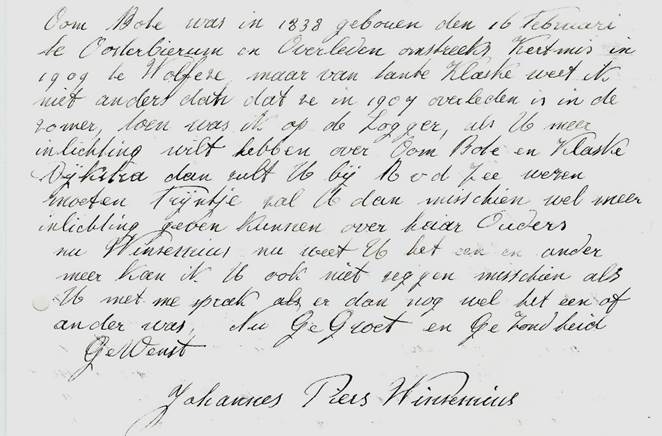 Oom Bobe was in 1838 geboren den 16 Februari
te Oosterbierum en Overleden omstreeks Kertmis in
1909 te Wolfeze, maar van tante Klaske weet ik
niet anders dan dat ze in 1907 overleden is in de
zomer, toen was ik op de Logger, als U meer
inlichting wilt hebben over Oom Bobe en Klaske
Dijkstra dan zult U bij R v d Zee wezen
moeten Trijntje zal U dan misschien wel meer
inlichting geven kunnen over haar Ouders
nu Winsemius nu weet U het een en ander
meer kan ik U ook niet zeggen misschien als
U met me sprak als er dan nog wel het een of
ander was, Nu GeGroet en Gezondheid
GeWenst
Johannes Piers Winsemius